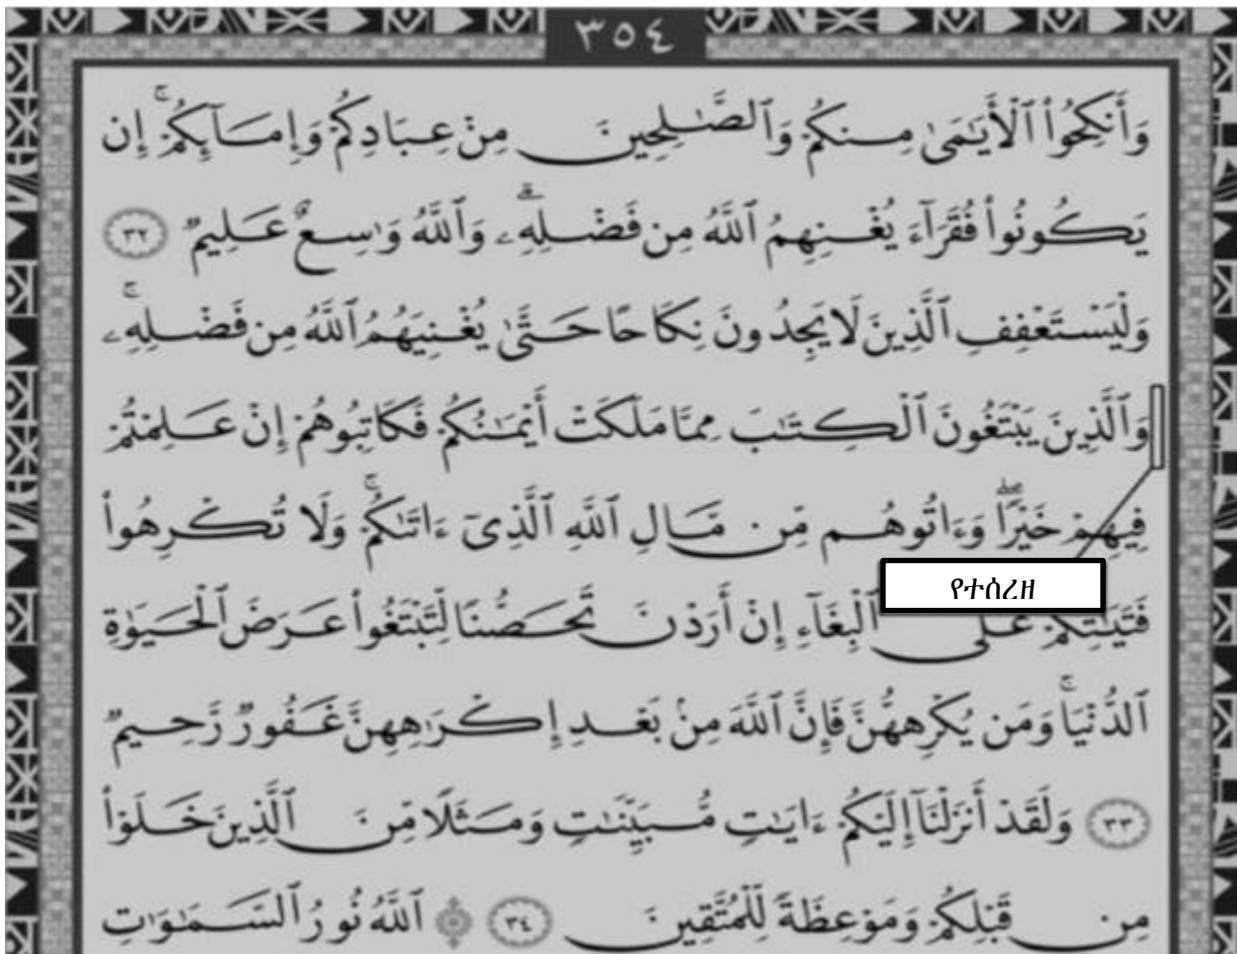 ٣٥٤
وَأَنكِحُوا۟ ٱلْأَيَـٰمَىٰ مِنكُمْ وَٱلصَّـٰلِحِينَ مِنْ عِبَادِكُمْ وَإِمَآئِكُمْ ۚ إِن
يَكُونُوا۟ فُقَرَآءَ يُغْنِهِمُ ٱللَّهُ مِن فَضْلِهِۦ ۗ وَٱللَّهُ وَٰسِعٌ عَلِيمٌ ٣٢
وَلْيَسْتَعْفِفِ ٱلَّذِينَ لَا يَجِدُونَ نِكَاحًا حَتَّىٰ يُغْنِيَهُمُ ٱللَّهُ مِن فَضْلِهِۦ ۗ
وَٱلَّذِينَ يَبْتَغُونَ ٱلْكِتَـٰبَ مِمَّا مَلَكَتْ أَيْمَـٰنُكُمْ فَكَاتِبُوهُمْ إِنْ عَلِمْتُمْ
فِيهِمْ خَيْرًا ۖ وَءَاتُوهُم مِّن مَّالِ ٱللَّهِ ٱلَّذِىٓ ءَاتَىٰكُمْ ۚ وَلَا تُكْرِهُوا۟
የተሰረዘ
فَتَيَـٰتِكُمْ عَلَى ٱلْبِغَآءِ إِنْ أَرَدْنَ تَحَصُّنًا لِّتَبْتَغُوا۟ عَرَضَ ٱلْحَيَوٰةِ
ٱلدُّنْيَا ۚ وَمَن يُكْرِههُّنَّ فَإِنَّ ٱللَّهَ مِنۢ بَعْدِ إِكْرَٰهِهِنَّ غَفُورٌ رَّحِيمٌ
٣٣ وَلَقَدْ أَنزَلْنَآ إِلَيْكُمْ ءَايَـٰتٍ مُّبَيِّنَـٰتٍ وَمَثَلًا مِّنَ ٱلَّذِينَ خَلَوْا۟
مِن قَبْلِكُمْ وَمَوْعِظَةً لِّلْمُتَّقِينَ ٣٤ ۞ ٱللَّهُ نُورُ ٱلسَّمَـٰوَٰتِ